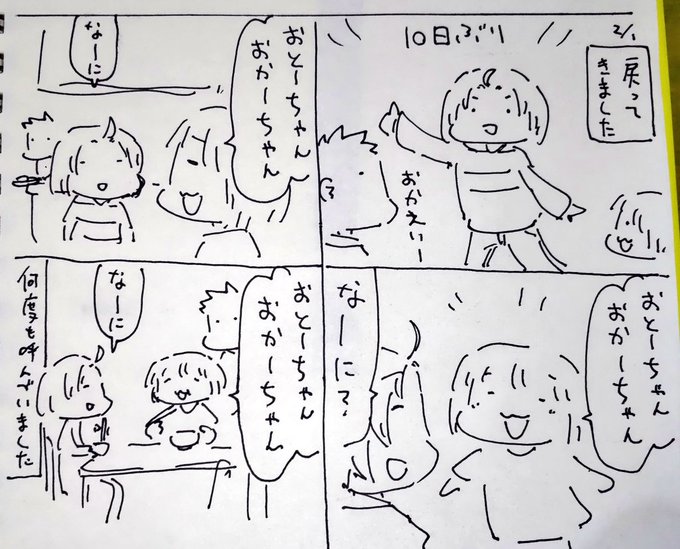 2/1
戻って
きました
10日ぶり
おかえいー
おとーちゃん
おかーちゃん
なーに
おとーちゃん
おかーちゃん
なーに?
おとーちゃん
おかーちゃん
なーに
何度も呼んでいました